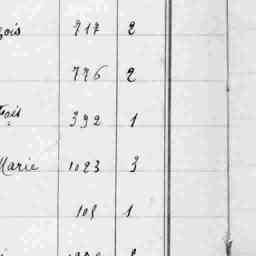 çois 717 2
776 2
392 1
Marie 1023 3
101 1